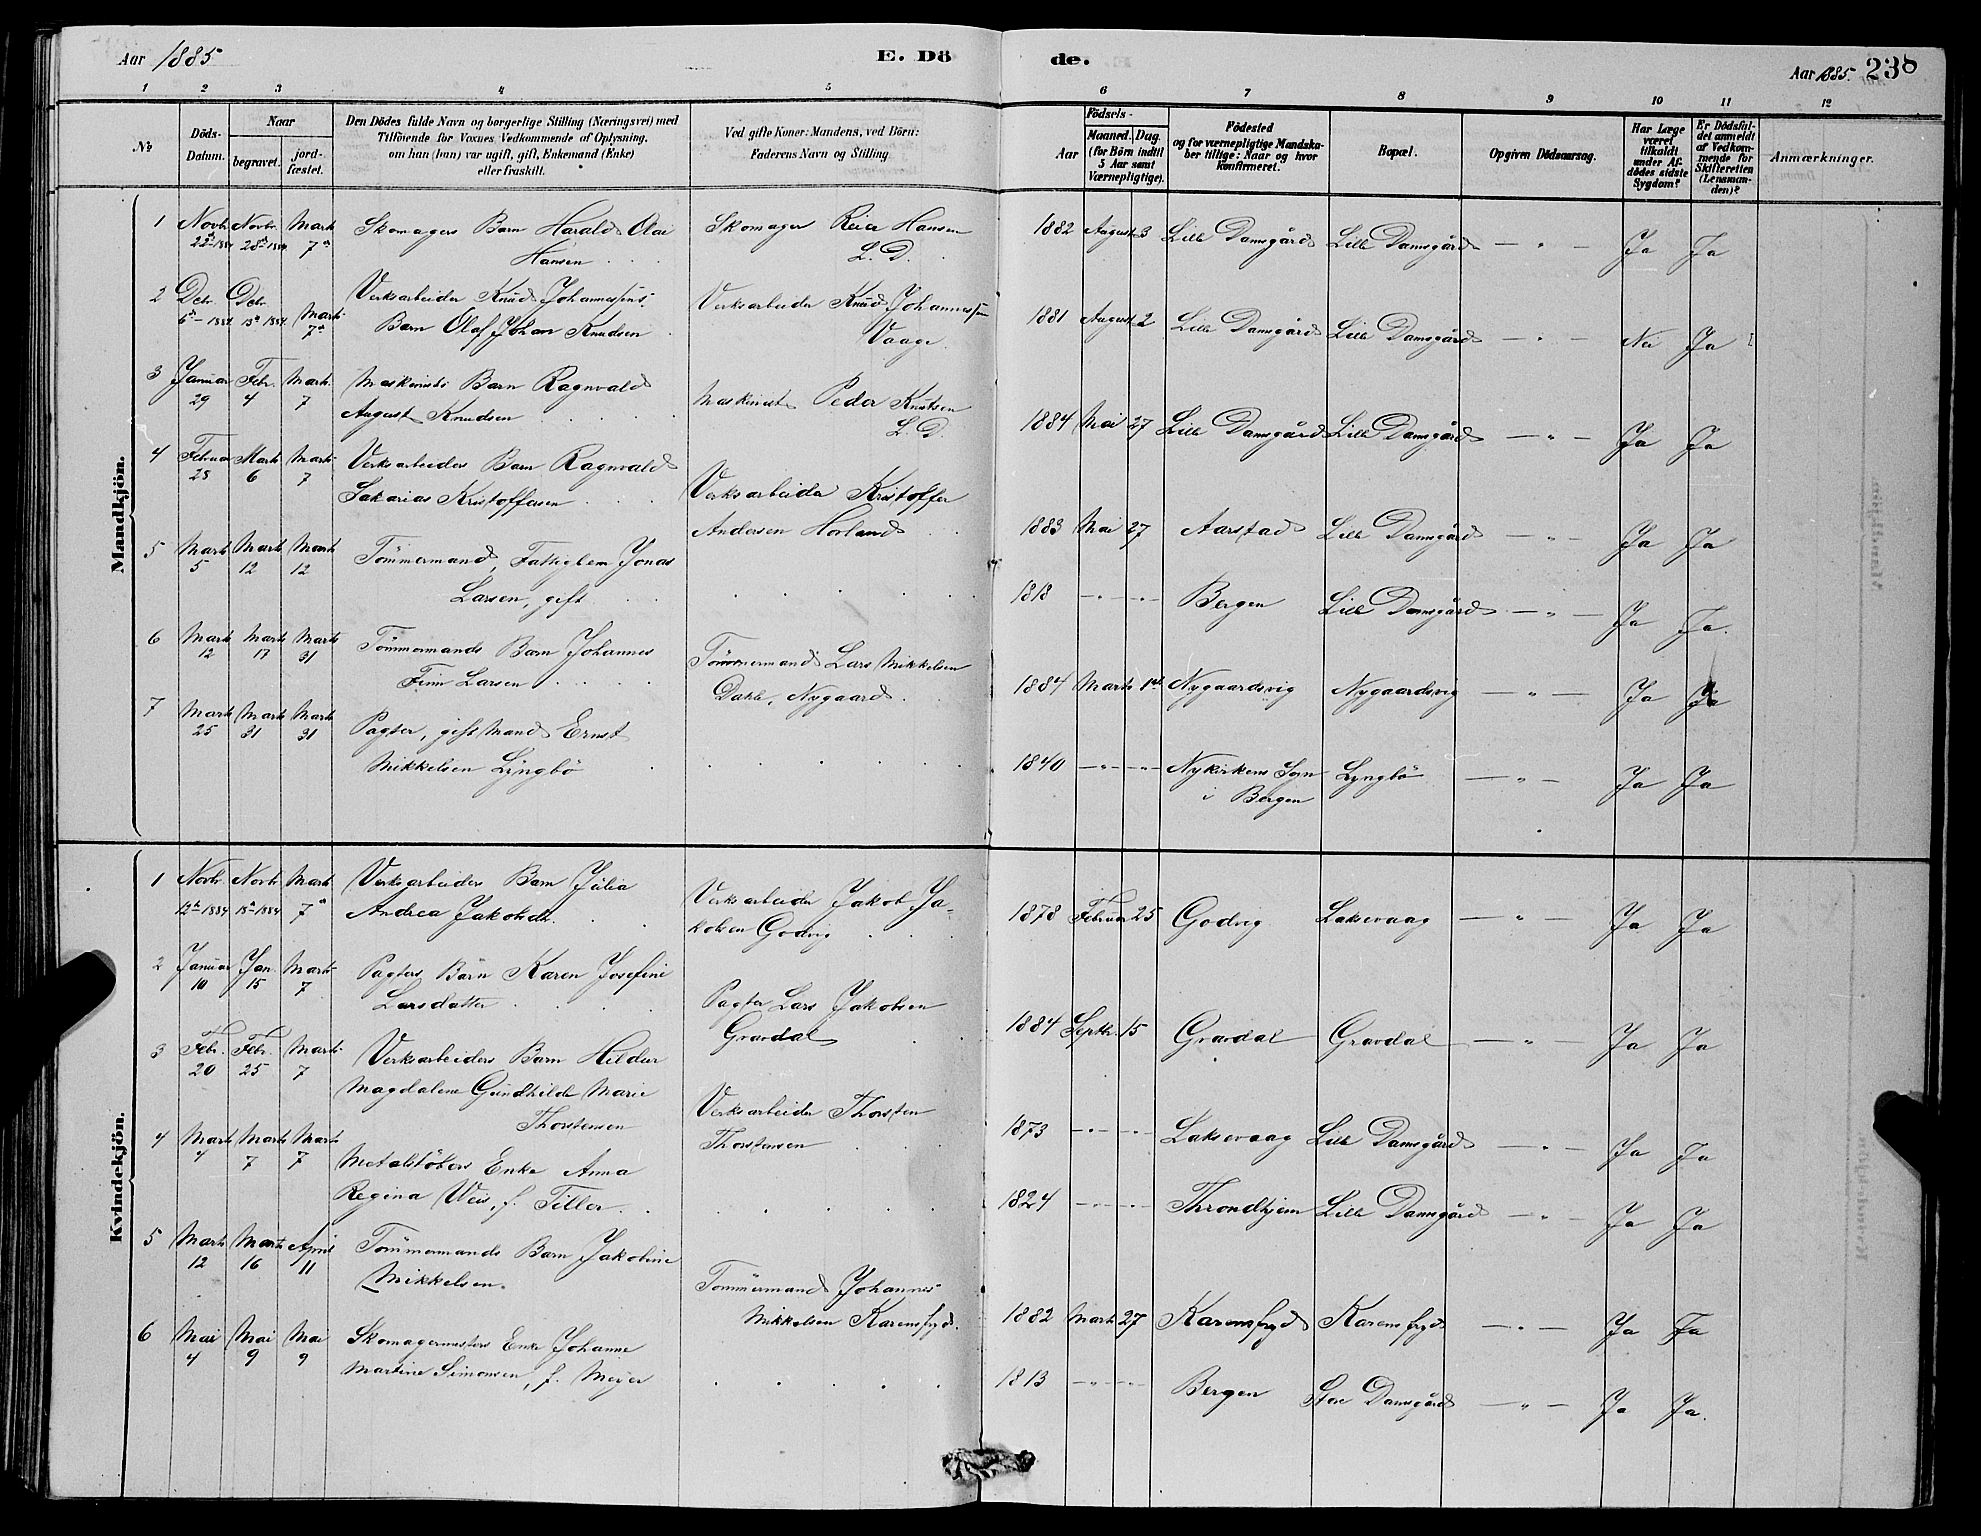 Aar 1885
E. Dö
de.
Aar 1885. 238
1 2 3 4 5
6 7 8 9 10 11 12
No
Döds-
Datum.
Naar
begravet.
jord-
fæstet.
Den Dödes fulde Navn og borgerlige Stilling (Næringsvei) med
Tilföiende for Voxnes Vedkommende af Oplysning,
om han (hun) var ugift, gift, Enkemand (Enke)
eller fraskilt.
Ved gifte Koner: Mandens, ved Börn:
Faderens Navn og Stilling.
Födsels-
Aar
Maaned.
Dag.
(for Börn indtil
5 Aar samt
Værnepligtige).
Födested
og for værnepligtige Mandska-
ber tillige: Naar og hvor
konfirmeret.
Bopæl.
Opgiven Dödsaarsag.
Har Læge
været
tilkaldt
under Af-
dödes sidste
Sygdom?
Er Dödsfal-
det anmeldt
af Vedkom-
mende for
Skifteretten
(Lensman-
den)?
Anmærkninger.
Mandkjön.
1 Novbr. Novbr. Marts Skomagers Barn Harald Olai Skomager Reier Hansen 1882 August 3 Lille Damsgård Lille Damsgård — " — Ja Ja
22de 1884 28de 1884 7de Hansen L. D.
2 Debr. Debr. Marts Verksarbeider Knud Johannessens Verksarbeider Knud Johannessen 1881 August 2 Lille Damsgård Lille Damsgård — " — Nei Ja
6te 1884. 13de 1884. 7de Barn Olaf Johan Knudsen Vaage
3 Januar Febr. Marts Maskinists Barn Ragnvald Maskinist Peder Knutsen 1884 Mai 27 Lille Damsgård Lille Damsgård — " — Ja Ja
29 4 7 August Knudsen L. D.
4 Februar Marts Marts Verksarbeiders Barn Ragnvald Verksarbeider Kristoffer 1883 Mai 27 Aarstad Lille Damsgård — " — Ja Ja
28 6 7 Sakarias Kristoffersen Andersen Horland
5 Marts Marts Marts Tömmermand, Fattiglem Jonas 1818 — " — — " — Bergen Lille Damsgård — " — Ja Ja.
5 12 12 Larsen, gift
6 Marts Marts Marts Tömmermands Barn Johannes Tömmermand Lars Mikkelsen 1884 Marts 1ste Nygaardsvig Nygaardsvig — " — Ja Ja
12 17 31 Finn Larsen Dahle, Nygaard
7 Marts Marts Marts Pagter, gift Mand Ernst 1840 — " — — " — Nykirkens Sogn Lyngbö — " — Ja Ja
25 31 31 Mikkelsen Lyngbö i Bergen
Kvindekjön.
1 Novbr Novbr Marts Verksarbeiders Barn Julia Verksarbeider Jakob Ja- 1878 Februar 25 Godvig Laksevaag — " — Ja Ja
12te 1884 18de 1884 7de Andrea Jakobdtr. kobsen Godvig
2 Januar Jan. Marts Pagters Barn Karen Josefine Pagter Lars Jakobsen 1884 Septbr. 15 Gravdal Gravdal — " — Ja Ja
10 15 7 Larsdatter Gravdal
3 Febr. Febr. Marts Verksarbeiders Barn Hildur Verksarbeider Thorsten 1873 — " — — " — Laksevaag Lille Damsgård — " — Ja Ja
20 25 7 Magdalene Gundhilde Marie Thorstensen
Thorstensen
4 Marts Marts Marts Metalstöbers Enke Anna 1824 — " — — " — Throndhjem Lille Damsgård — " — Ja Ja
4 7 7 Regina Weis, f. Tiller
5 Marts Marts April Tömmermands Barn Jakobine Tömmermand Johannes 1882 Marts 27 Karensfryd Karensfryd — " — Ja Ja
12 16 11 Mikkelsen. Mikkelsen Karensfryd.
6 Mai Mai Mai Skomagermesters Enke Johanne 1813 — " — — " — Bergen Store Damsgård — " — Ja Ja.
4 9 9 Martine Simonsen, f. Meyer